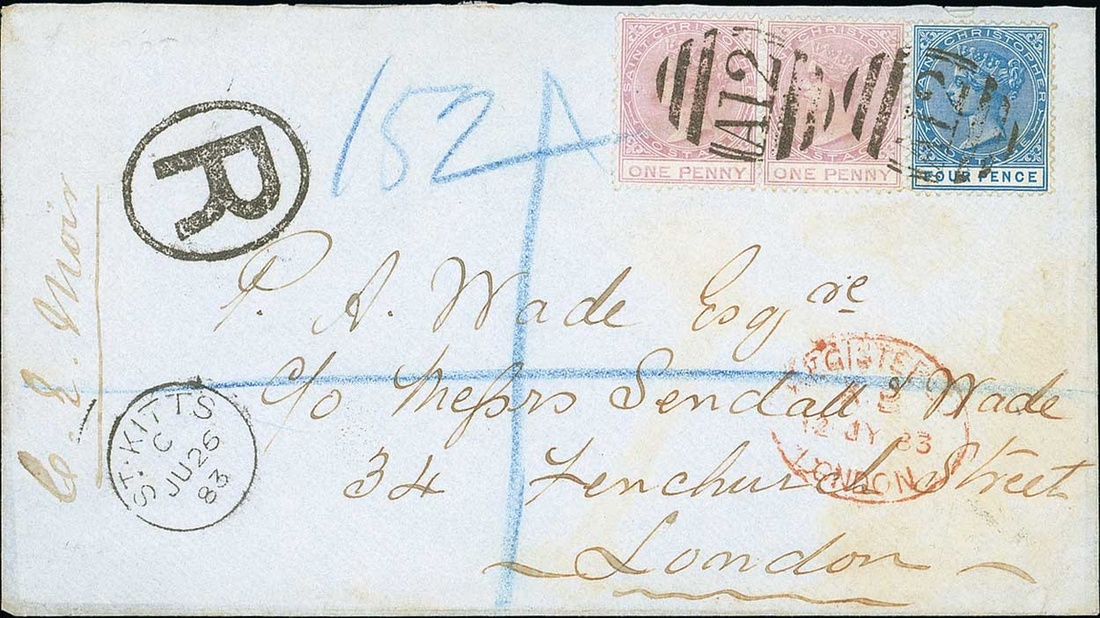 SAINT CHRISTOPHER
POSTAGE
ONE PENNY
SAINT CHRISTOPHER
POSTAGE
ONE PENNY
SAINT CHRISTOPHER
POSTAGE
FOUR PENCE
A12
A12
152A
R
C. E. Moir
P. A. Wade Esqre
c/o Messrs Sendall Wade
34 Fenchurch Street
London
ST. KITTS
C
JU 26
83
REGISTERED
12 JY 83
LONDON